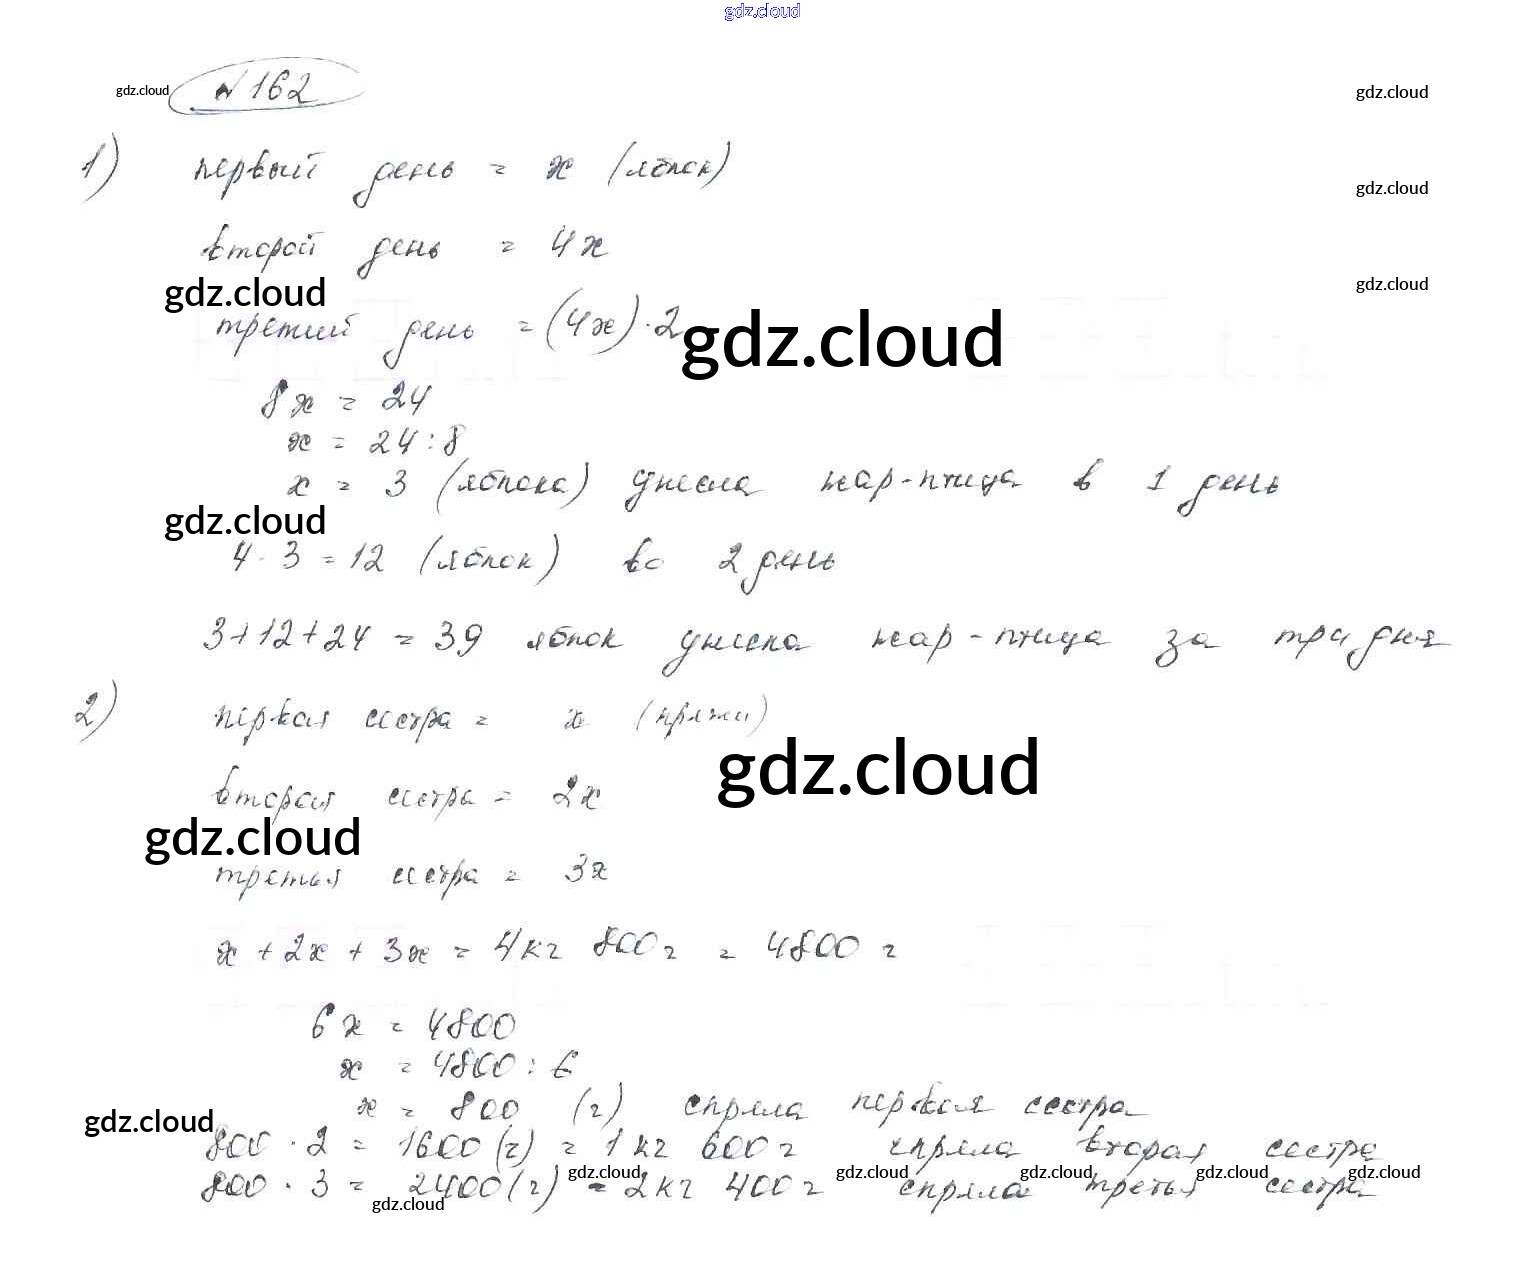 gdz.cloud
gdz.cloud
№ 162
gdz.cloud
1) первый день = x (яблок)
gdz.cloud
второй день = 4x
gdz.cloud
gdz.cloud
третий день = (4x)·2
gdz.cloud
8x = 24
x = 24:8
x = 3 (яблока) унесла жар-птица в 1 день
gdz.cloud
4·3 = 12 (яблок) во 2 день
3+12+24 = 39 яблок унесла жар-птица за три дня
2) первая сестра = x (пряжи)
gdz.cloud
вторая сестра = 2x
gdz.cloud
третья сестра = 3x
x + 2x + 3x = 4кг 800г = 4800 г
6x = 4800
x = 4800 : 6
x = 800 (г) спряла первая сестра
gdz.cloud
800 · 2 = 1600 (г) = 1 кг 600 г спряла вторая сестра
gdz.cloud gdz.cloud gdz.cloud gdz.cloud gdz.cloud
800 · 3 = 2400 (г) = 2кг 400 г спряла третья сестра
gdz.cloud